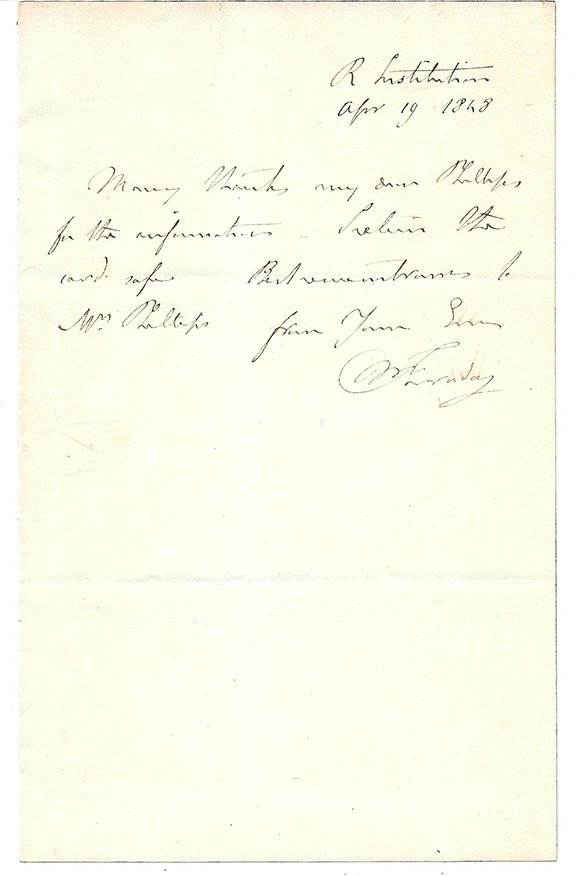 R Institution
Apr 19 1848
Many thanks my dear Phillips
for the information _ I return the
card safe Best remembrances to
Mrs Phillips from Yours Ever
M Faraday